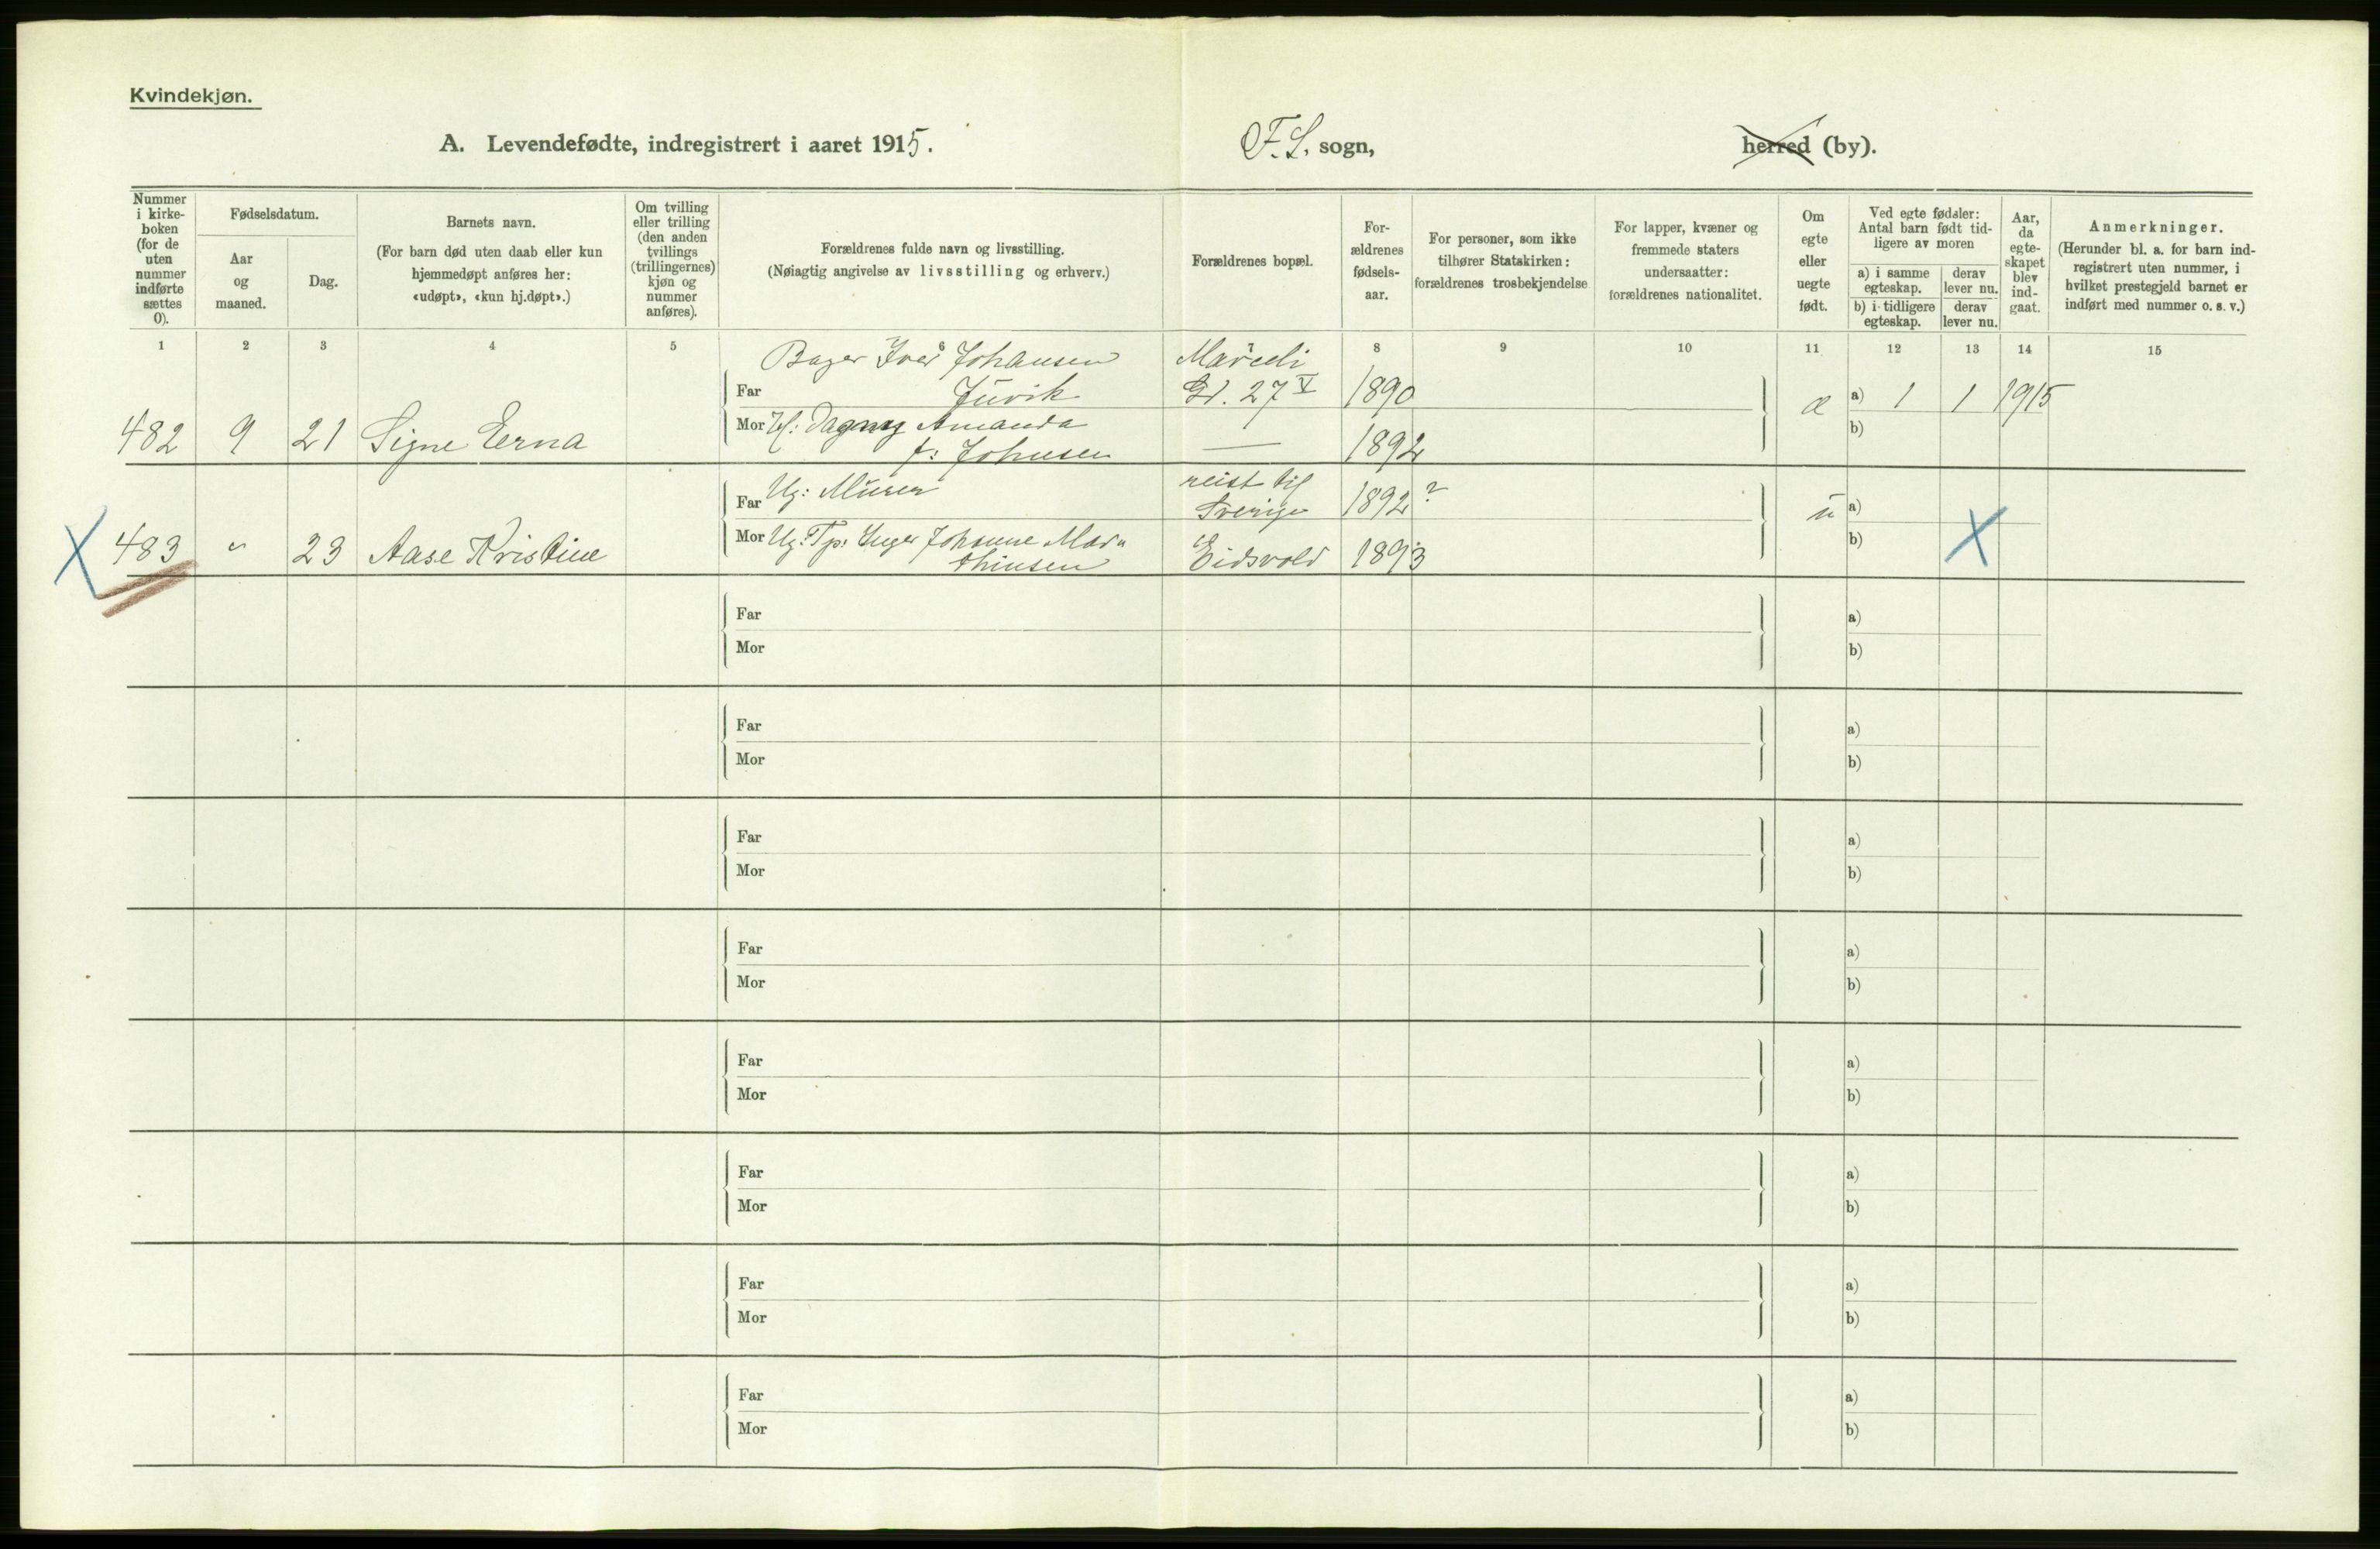 Kvindekjøn.
A. Levendefødte, indregistrert i aaret 1915.
F. S. sogn,
herred (by).
Nummer i kirke-boken (for de uten nummer indførte sættes 0).
Fødselsdatum.
Aar og maaned.
Dag.
Barnets navn.
(For barn død uten daab eller kun hjemmedøpt anføres her: «udøpt», «kun hj.døpt».)
Om tvilling eller trilling (den anden tvillings (trillingernes) kjøn og nummer anføres).
Forældrenes fulde navn og livsstilling.
(Nøiagtig angivelse av livsstilling og erhverv.)
Forældrenes bopæl.
For-ældrenes fødsels-aar.
For personer, som ikke tilhører Statskirken: forældrenes trosbekjendelse
For lapper, kvæner og fremmede staters undersaatter: forældrenes nationalitet.
Om egte eller uegte født.
Ved egte fødsler: Antal barn født tid-ligere av moren
a) i samme egteskap.
derav lever nu.
b) i tidligere egteskap.
derav lever nu.
Aar, da egte-skapet blev ind-gaat.
Anmerkninger.
(Herunder bl. a. for barn ind-registrert uten nummer, i hvilket prestegjeld barnet er indført med nummer o. s. v.)
1 2 3 4 5 6 8 9 10 11 12 13 14 15
Bager Iver Johansen Marceli
Far Juvik Gd. 27 V 1890 æ a) 1 1 1915
Mor H: Dagny Amanda b)
482 9 21 Signe Erna f: Johnsen — 1892
Far Ug: Murer reist til Sverige 1892 ? u a)
Mor Ug: Tp: Inger Johanne Mar" b)
X 483 " 23 Aase Kristine thinsen Eidsvold 1893 X
Far a)
Mor b)
Far a)
Mor b)
Far a)
Mor b)
Far a)
Mor b)
Far a)
Mor b)
Far a)
Mor b)
Far a)
Mor b)
Far a)
Mor b)